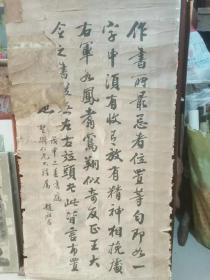 作書所最忌者位置等勻即如一
字中須有收有放有精神相挽處
右軍如鳳翥鸞翔似奇反正王大
令之書從無左右竝頭者此皆言布置
也